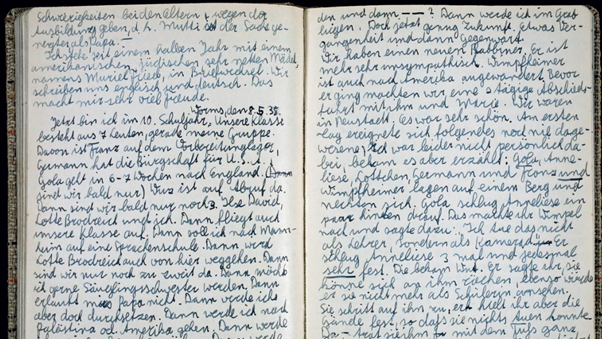 Schwierigkeiten bei den Eltern wegen der
Ausbildung geben, d. h. Mutti der Sache ge-
neigter als Papa.
Ich stehe seit einem halben Jahr mit einem
amerikanischen, jüdischen, sehr netten Mädel,
namens Muriel in Briefwechsel. Wir
schreiben uns englisch und deutsch. Das
macht mir sehr viel Freude.
Worms, den 8.5.38.
Jetzt bin ich im 10. Schuljahr, unsere Klasse
besteht aus 7 Leuten, gerade meine Gruppe.
Davon ist Franz auf dem Vorbereitungslager,
Germann hat die Bürgschaft für U.S.A.,
Gola geht in 6-7 Wochen nach England. (Dann
sind wir bald nur) ist auf Abruf da.
Dann sind wir bald nur noch 3. Ilse David,
Lotte Brodreich und ich. Dann fliegt auch
unsere Klasse auf. Dann soll ich nach Mann-
heim auf eine Sprachenschule. Dann wird
Lotte Brodreich auch von hier weggehen. Dann
sind wir nur noch zu zweit da. Dann möchte
ich gerne Säuglingsschwester werden. Dann
erlaubt mir's Papa nicht. Dann werde ich's
aber doch durchsetzen. Dann werde ich nach
Palästina od. Amerika gehen. Dann werde
den und dann — — — ? Dann werde ich im Grab
liegen. Doch jetzt genug Zukunft, etwas Ver-
gangenheit und dann Gegenwart.
Wir haben einen neuen Rabbiner. Er ist
mehr sehr unsympathisch. Wimpfheimer
ist auch nach Amerika ausgewandert. Bevor
er ging machten wir eine tägige Abschieds-
fahrt mit ihm und Marie. Wir waren
in Neustadt, es war sehr schön. Am ersten
Tag ereignete sich folgendes noch nie dage-
wesene, ich war leider nicht persönlich da-
bei, bekam es aber erzählt: Gola, Anne-
liese, Lottchen, Germann und Franz und
Wimpfheimer lagen auf einem Berg und
neckten sich. Gola schlug Anneliese ein
paar hinten drauf. Das machte ihr Wimpel
nach und sagte dazu: „Ich tue das nicht
als Lehrer, sondern als Kamerad" er
schlug Anneliese 3 mal und jedesmal
sehr fest. Die bekam Wut. Er sagte ihr, sie
könne sich an ihm rächen, ebenso würde
er sie nicht mehr als Schülerin ansehen.
Sie schritt auf ihn zu, er hielt ihr aber die
Hände fest, so daß sie nichts tuen konnte
Da – trat sie ihm mit dem Fuß ganz